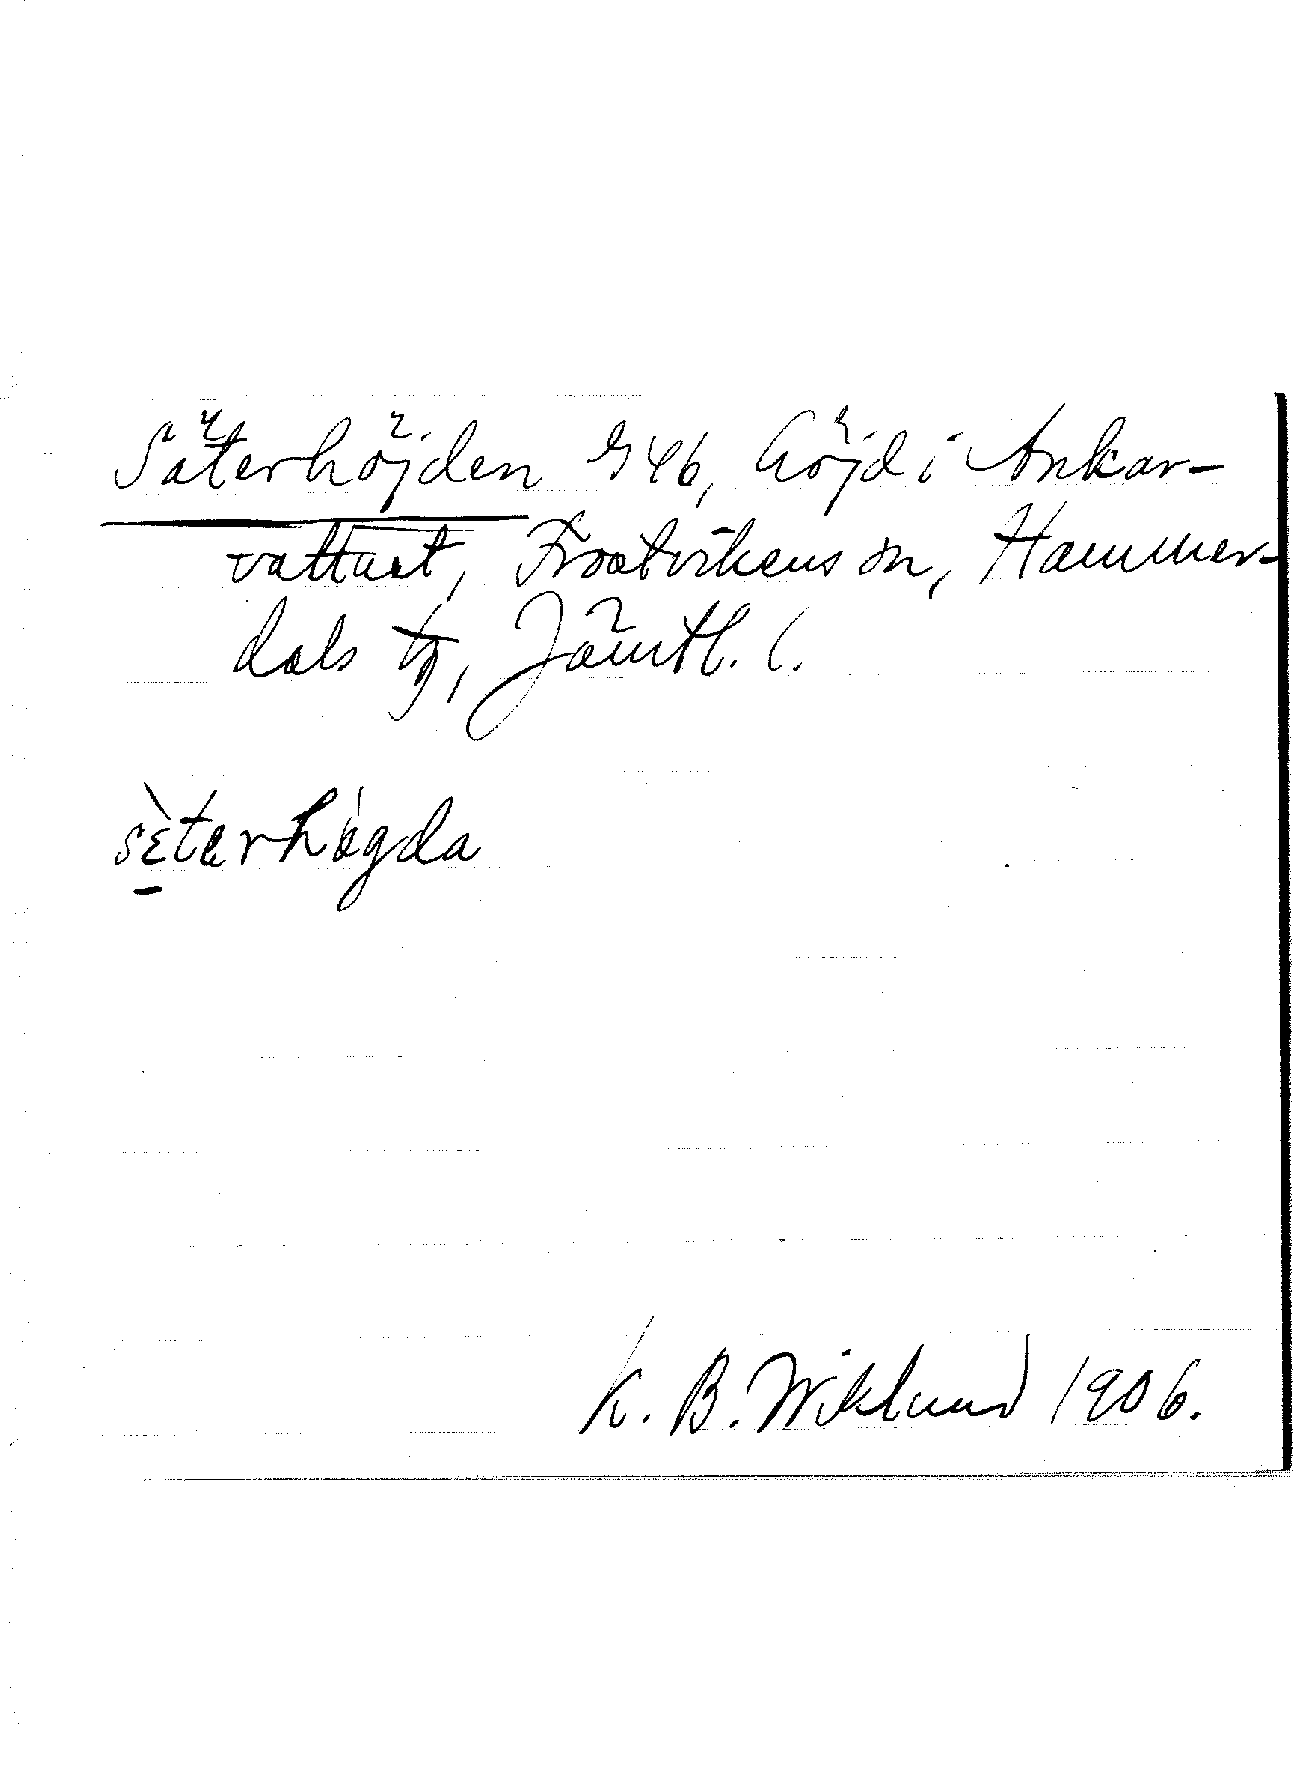 Säterhöjden G46, höjd i Ankar-
vattnet, Frostvikens sn, Hammer-
dals tg, Jämtl. l.
sὲterhögda
K. B. Wiklund 1906.